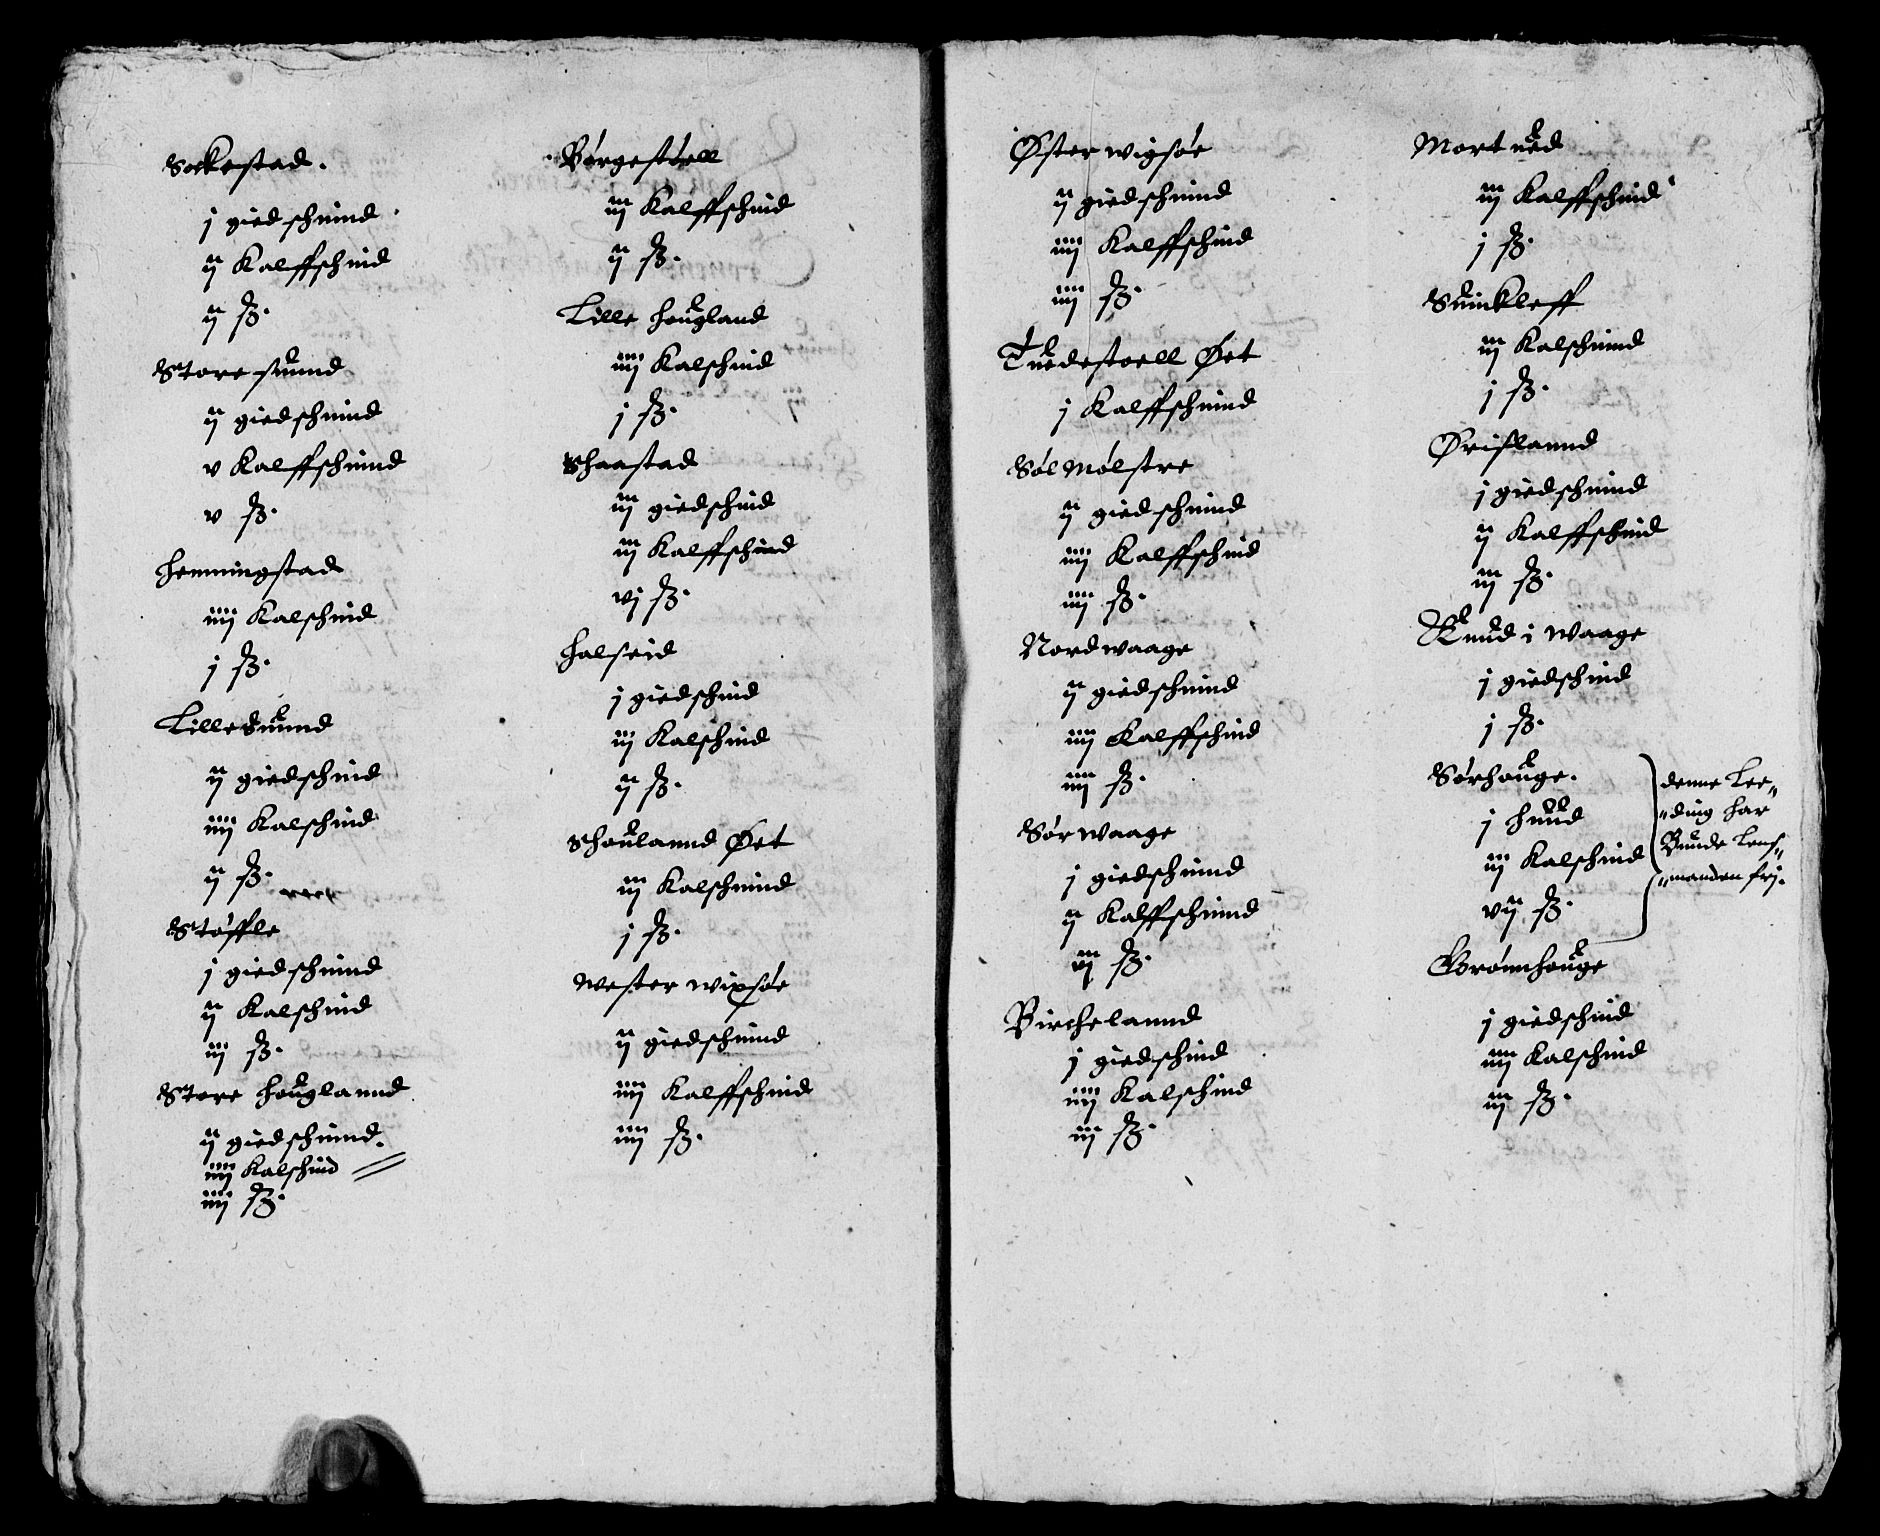 Sockestad.
j giedschinnd
ij Kalffschind
ij ß.
Store sunnd
ij giedschinnd
v Kalffschinnd
v ß.
Henningstad
iiij Kalschind
j ß.
Lillesunnd
ij giedschind
iiij Kalschind
ij ß.
Støffle
j giedschinnd
ij Kalschind
iij ß.
Store Houglannd
ij giedschinnd.
iiij Kalschind
iiij ß.
Børgestøell
iij Kalffschind
ij ß.
Lille Hougland
iiij Kalschind
j ß.
Schaastad
iij giedschind
iij Kalffschind
vj ß.
Halseid
j giedschind
iij Kalschind
ij ß.
Schoulannd Øet
iij Kalschinnd
j ß.
Wester wixsøe
ij giedschinnd
iiij Kalffschind
iiij ß.
Øster wigsøe
ij giedschinnd
iiij Kalffschind
iiij ß.
Tuedestoell Øet
j Kalffschinnd
Søl Mølstre
ij giedschinnd
iiij Kalffschind
iiij ß.
Nordwaage
ij giedschinnd
iiij Kalffschind
iiij ß.
Sør waage
j giedschinnd
ij Kalffschinnd
vj ß.
Birchelannd
j giedschind
iiij Kalschind
iij ß.
Mortued
iij Kalffschind
j ß.
Suinkleff
iij Kalschinnd
j ß.
Ørislannd
j giedschinnd
ij Kalffschind
iij ß.
Knud i Waage
j giedschind
j ß.
Sørhouge.
j Huud
iij Kalschind
vij ß.
denne Lee„
„ding har
Bunde Lens„
„manden frj.
Grønnhouge
j giedschind
iiij Kalschind
iij ß.